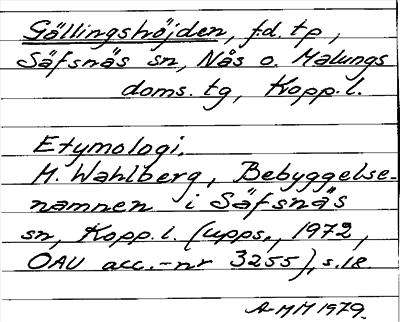 Gällingshöjden, f.d. tp,
Säfsnäs sn, Nås o. Malungs
doms. tg, Kopp. l.
Etymologi.
M. Wahlberg, Bebyggelse-
namnen i Säfsnäs
sn, Kopp. l. (upps., 1972,
OAU acc.-nr 3255), s. 18.
A-MM 1979.